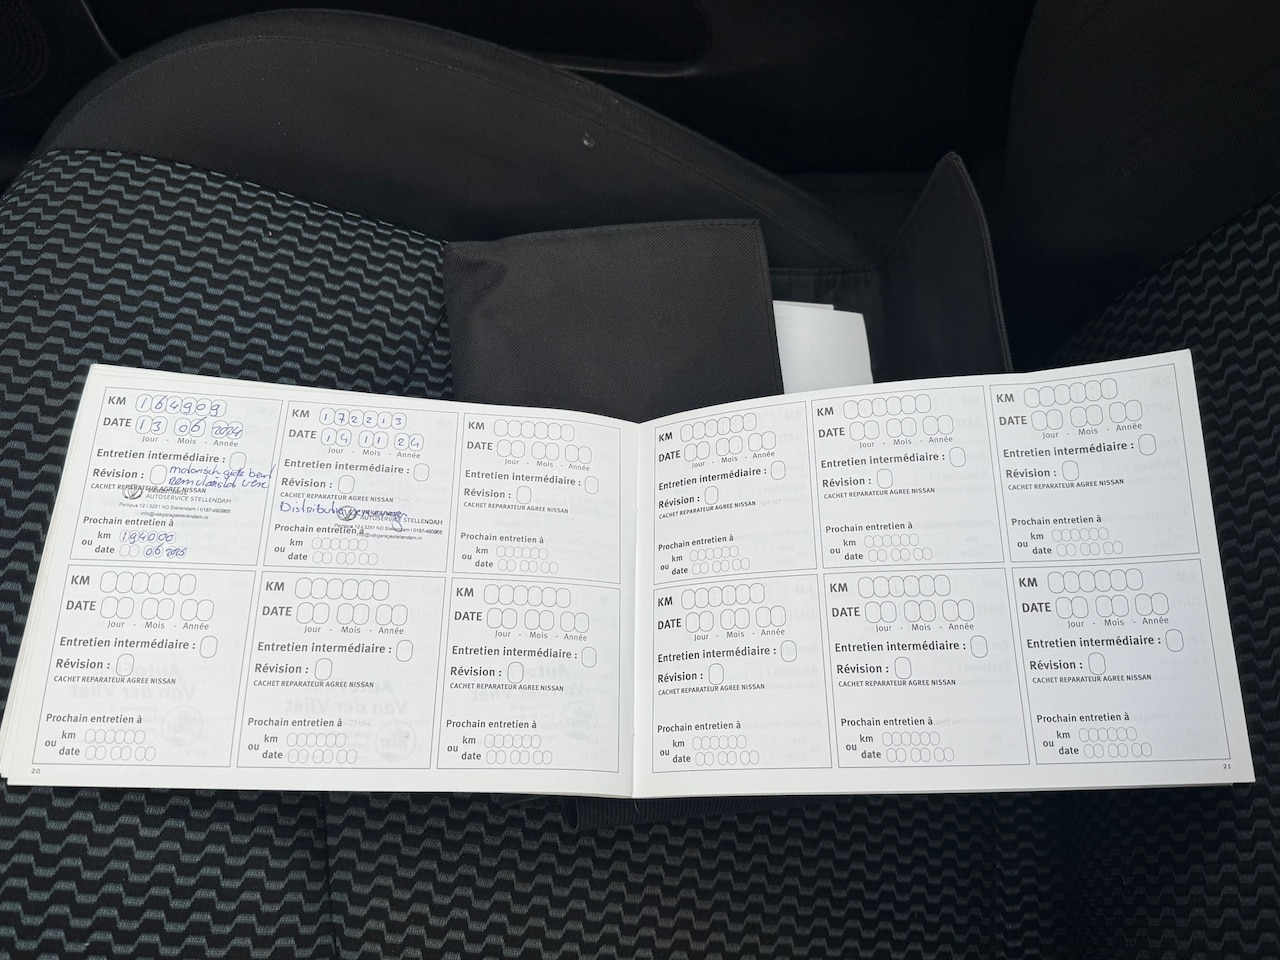 KM 164909
DATE 13 06 2024
Jour - Mois - Année
Entretien intermédiaire :
Révision : motorisch grote beurt
Remvloeistof
CACHET REPARATEUR AGREE NISSAN
AUTOSERVICE STELLENDAM
Prochain entretien à
km 194000
ou
date 06 2025
KM 172213
DATE 14 11 24
Jour - Mois - Année
Entretien intermédiaire :
Révision :
CACHET REPARATEUR AGREE NISSAN
Distributie
AUTOSERVICE STELLENDAM
Prochain entretien à
km
ou
date
KM
DATE
Jour - Mois - Année
Entretien intermédiaire :
Révision :
CACHET REPARATEUR AGREE NISSAN
Prochain entretien à
km
ou
date
KM
DATE
Jour - Mois - Année
Entretien intermédiaire :
Révision :
CACHET REPARATEUR AGREE NISSAN
Prochain entretien à
km
ou
date
KM
DATE
Jour - Mois - Année
Entretien intermédiaire :
Révision :
CACHET REPARATEUR AGREE NISSAN
Prochain entretien à
km
ou
date
KM
DATE
Jour - Mois - Année
Entretien intermédiaire :
Révision :
CACHET REPARATEUR AGREE NISSAN
Prochain entretien à
km
ou
date
20
KM
DATE
Jour - Mois - Année
Entretien intermédiaire :
Révision :
CACHET REPARATEUR AGREE NISSAN
Prochain entretien à
km
ou
date
KM
DATE
Jour - Mois - Année
Entretien intermédiaire :
Révision :
CACHET REPARATEUR AGREE NISSAN
Prochain entretien à
km
ou
date
KM
DATE
Jour - Mois - Année
Entretien intermédiaire :
Révision :
CACHET REPARATEUR AGREE NISSAN
Prochain entretien à
km
ou
date
KM
DATE
Jour - Mois - Année
Entretien intermédiaire :
Révision :
CACHET REPARATEUR AGREE NISSAN
Prochain entretien à
km
ou
date
KM
DATE
Jour - Mois - Année
Entretien intermédiaire :
Révision :
CACHET REPARATEUR AGREE NISSAN
Prochain entretien à
km
ou
date
KM
DATE
Jour - Mois - Année
Entretien intermédiaire :
Révision :
CACHET REPARATEUR AGREE NISSAN
Prochain entretien à
km
ou
date
21